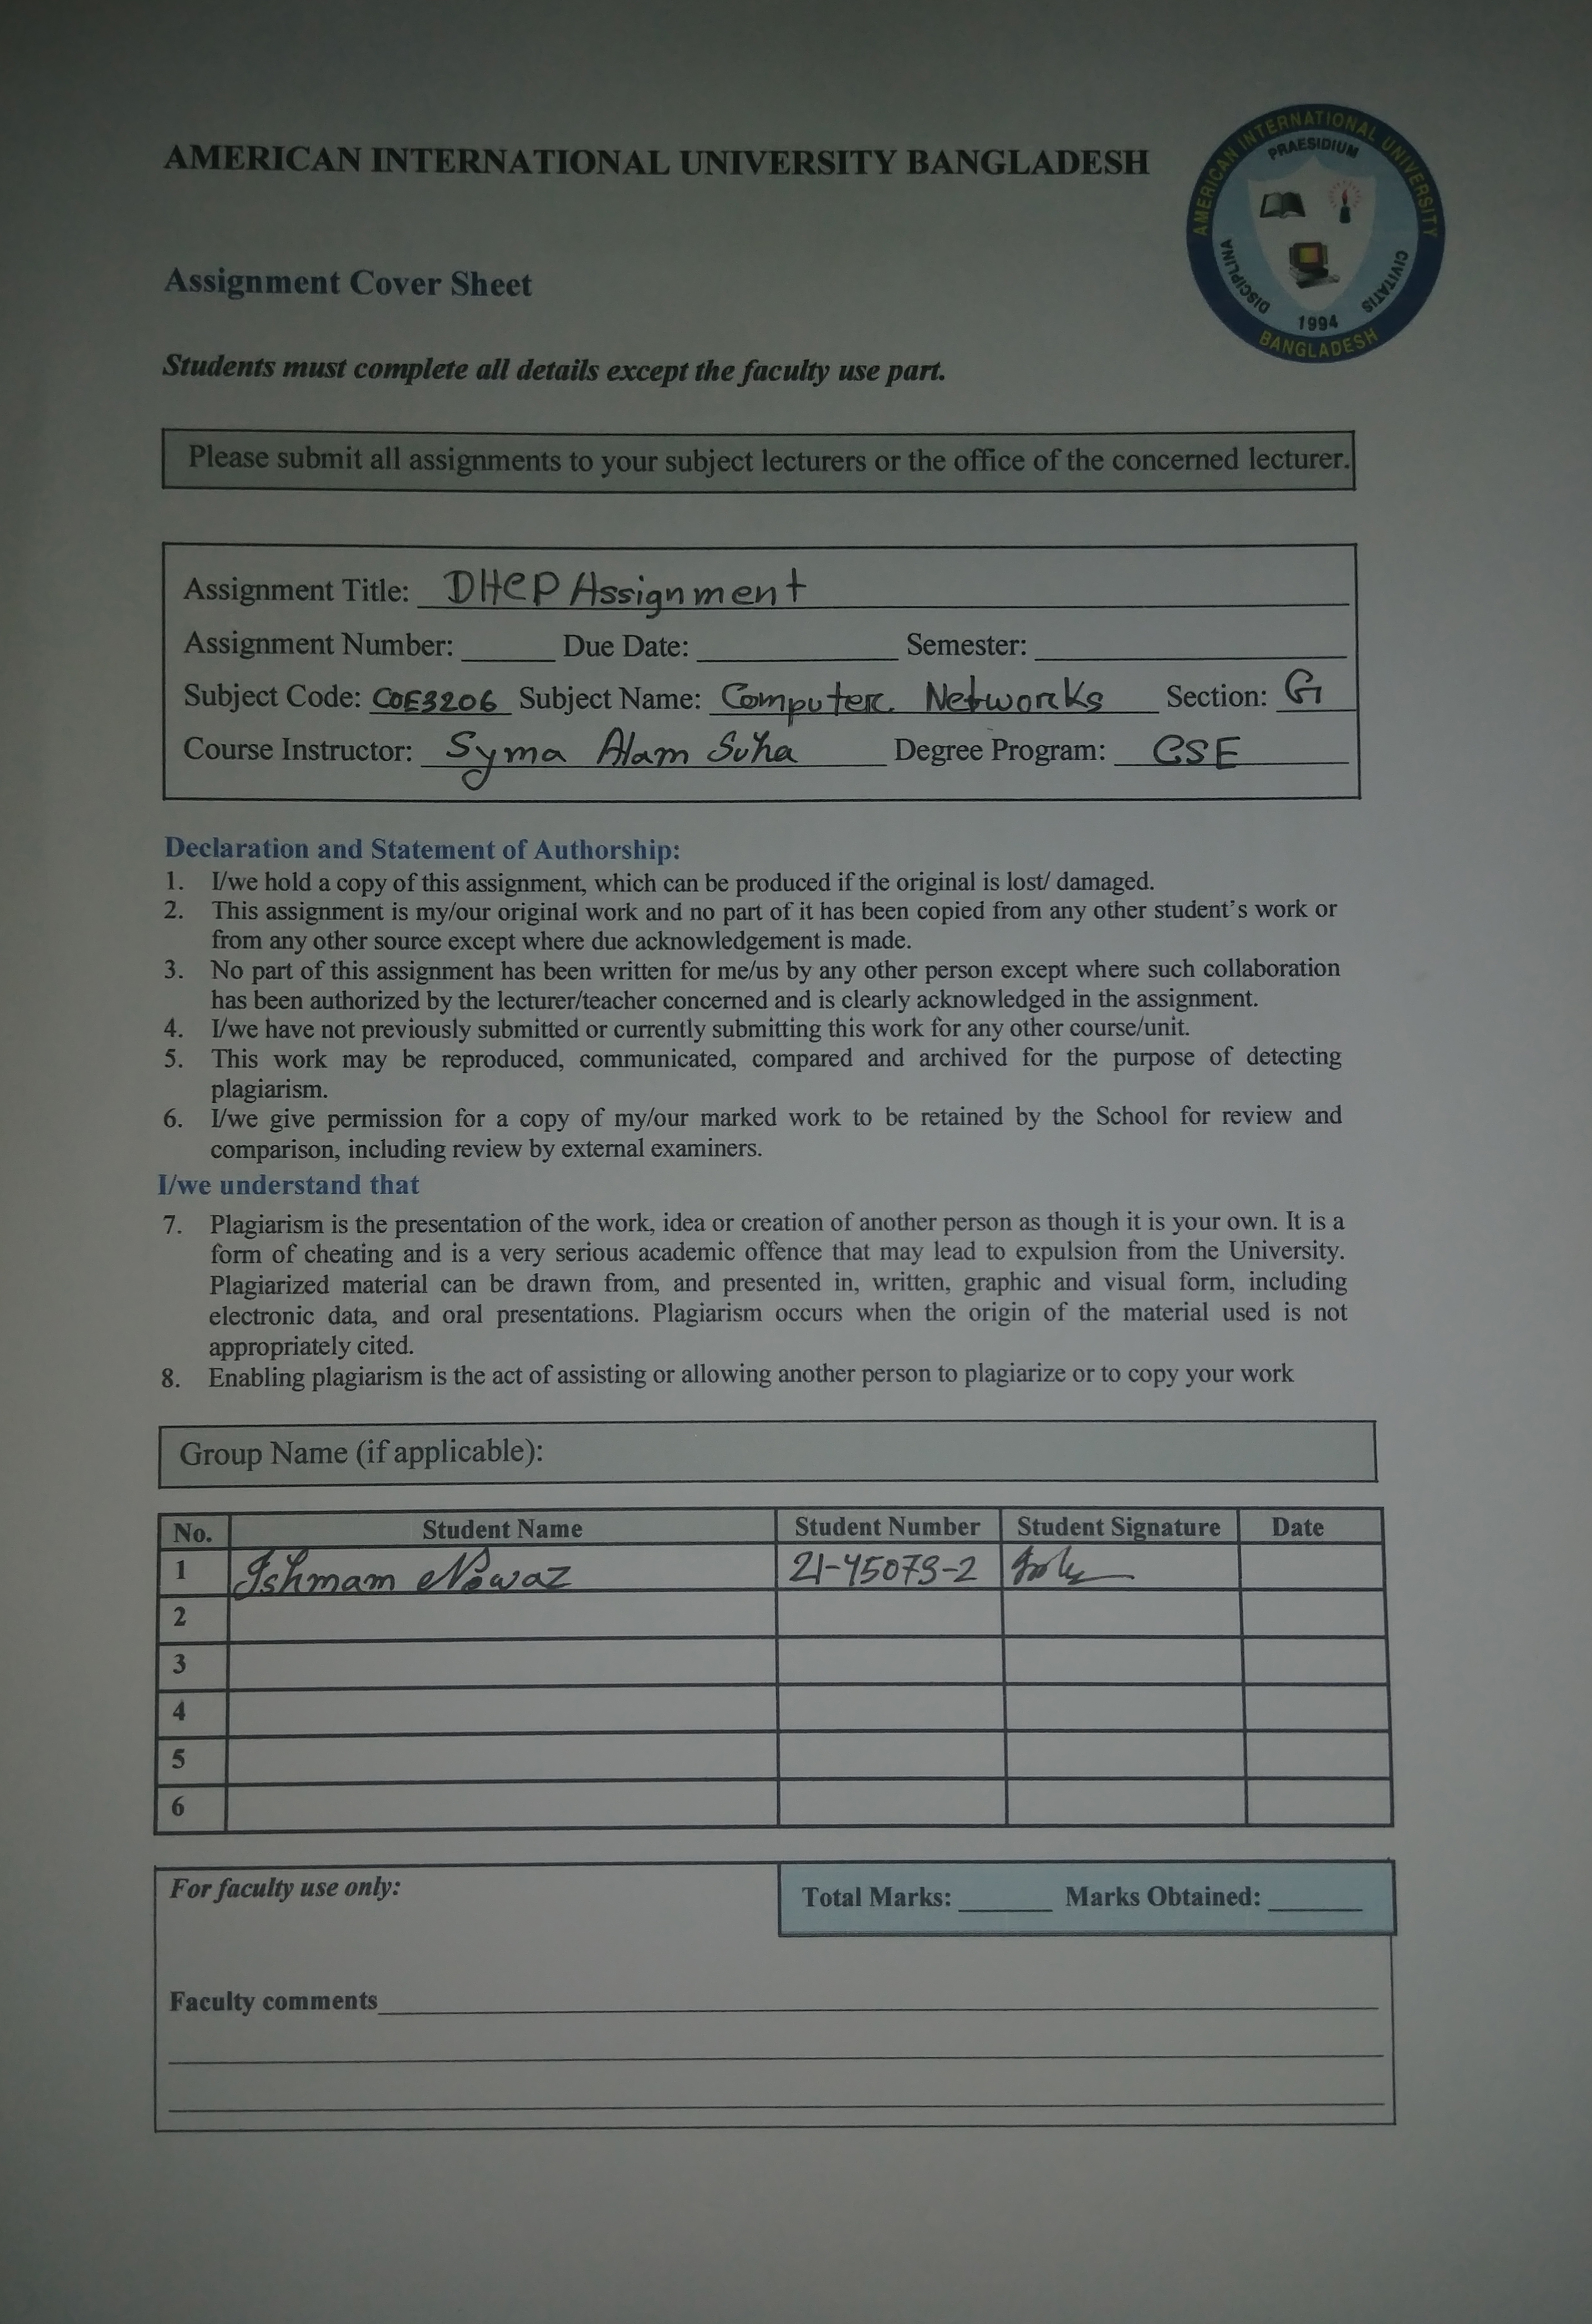 AMERICAN INTERNATIONAL UNIVERSITY BANGLADESH
AMERICAN INTERNATIONAL UNIVERSITY
PRAESIDIUM
DISCIPLINA
CIVITATIS
1994
BANGLADESH
Assignment Cover Sheet
Students must complete all details except the faculty use part.
Please submit all assignments to your subject lecturers or the office of the concerned lecturer.
Assignment Title: DHCP Assignment
Assignment Number: ______ Due Date: ______ Semester: ______
Subject Code: COE3206 Subject Name: Computer Networks Section: G
Course Instructor: Syma Alam Suha Degree Program: CSE
Declaration and Statement of Authorship:
1. I/we hold a copy of this assignment, which can be produced if the original is lost/ damaged.
2. This assignment is my/our original work and no part of it has been copied from any other student's work or
from any other source except where due acknowledgement is made.
3. No part of this assignment has been written for me/us by any other person except where such collaboration
has been authorized by the lecturer/teacher concerned and is clearly acknowledged in the assignment.
4. I/we have not previously submitted or currently submitting this work for any other course/unit.
5. This work may be reproduced, communicated, compared and archived for the purpose of detecting
plagiarism.
6. I/we give permission for a copy of my/our marked work to be retained by the School for review and
comparison, including review by external examiners.
I/we understand that
7. Plagiarism is the presentation of the work, idea or creation of another person as though it is your own. It is a
form of cheating and is a very serious academic offence that may lead to expulsion from the University.
Plagiarized material can be drawn from, and presented in, written, graphic and visual form, including
electronic data, and oral presentations. Plagiarism occurs when the origin of the material used is not
appropriately cited.
8. Enabling plagiarism is the act of assisting or allowing another person to plagiarize or to copy your work
Group Name (if applicable):
No. Student Name Student Number Student Signature Date
1 Ishmam Nawaz
2
3
4
5
6
For faculty use only:
Total Marks: ______ Marks Obtained: ______
Faculty comments